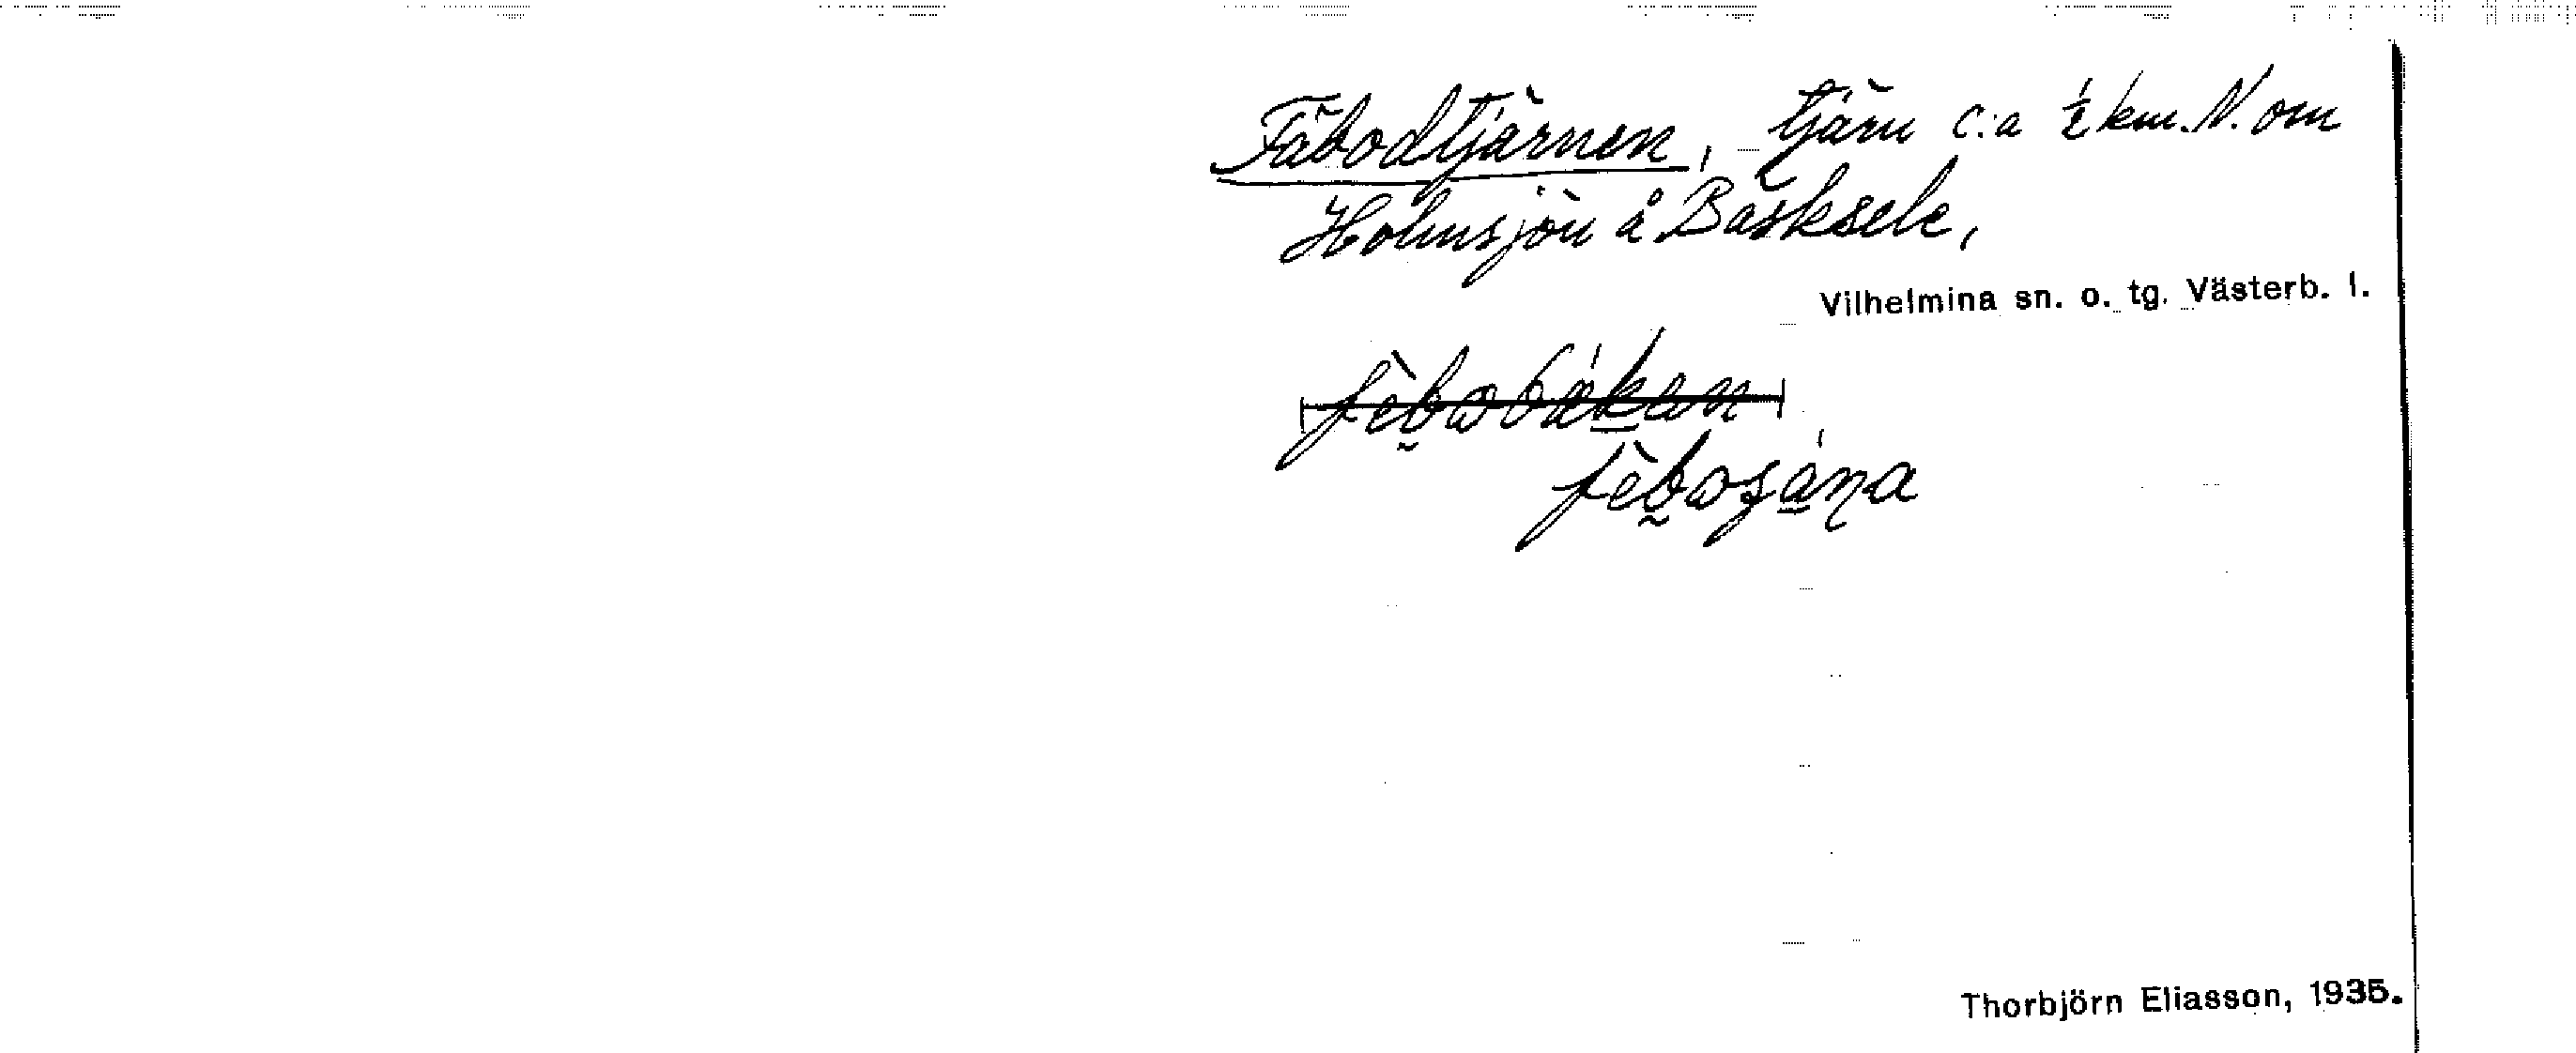 Fäbodtjärnen, tjärn c:a ½ km. N. om
Holmsjön å Bäsksele,
Vilhelmina sn. o. tg. Västerb. l.
Thorbjörn Eliasson, 1935.